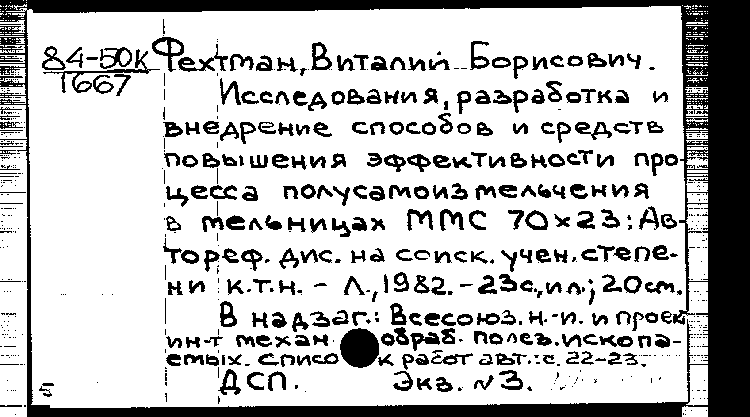 84-50К Фехтман, Виталий Борисович.
1667
Исследования, разработка и
внедрение способов и средств
повышения эффективности про-
цесса полусамоизмельчения
в мельницах ММС 70х23: Ав-
тореф. дис. на соиск. учен. степе-
ни к.т.н. - Л., 1982. - 23с., ил.; 20см.
В надзаг.: Всесоюз. н.-и. и проек
ин-т механ обраб. полез. ископа-
емых. Списо к работ авт.: с. 22-23.
ДСП. Экз. №3.
5